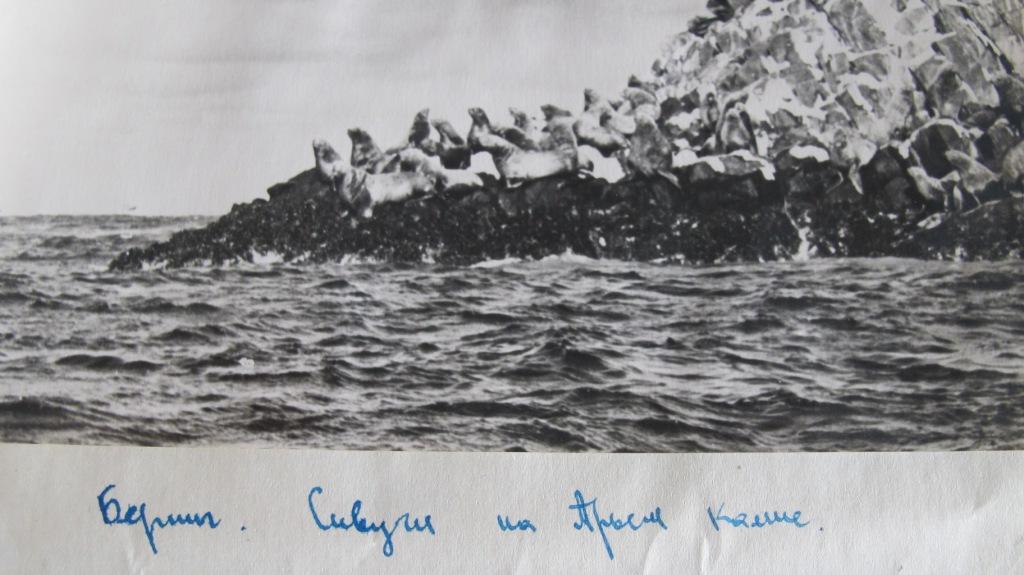 Беринг. Сивучи на Арьем камне.